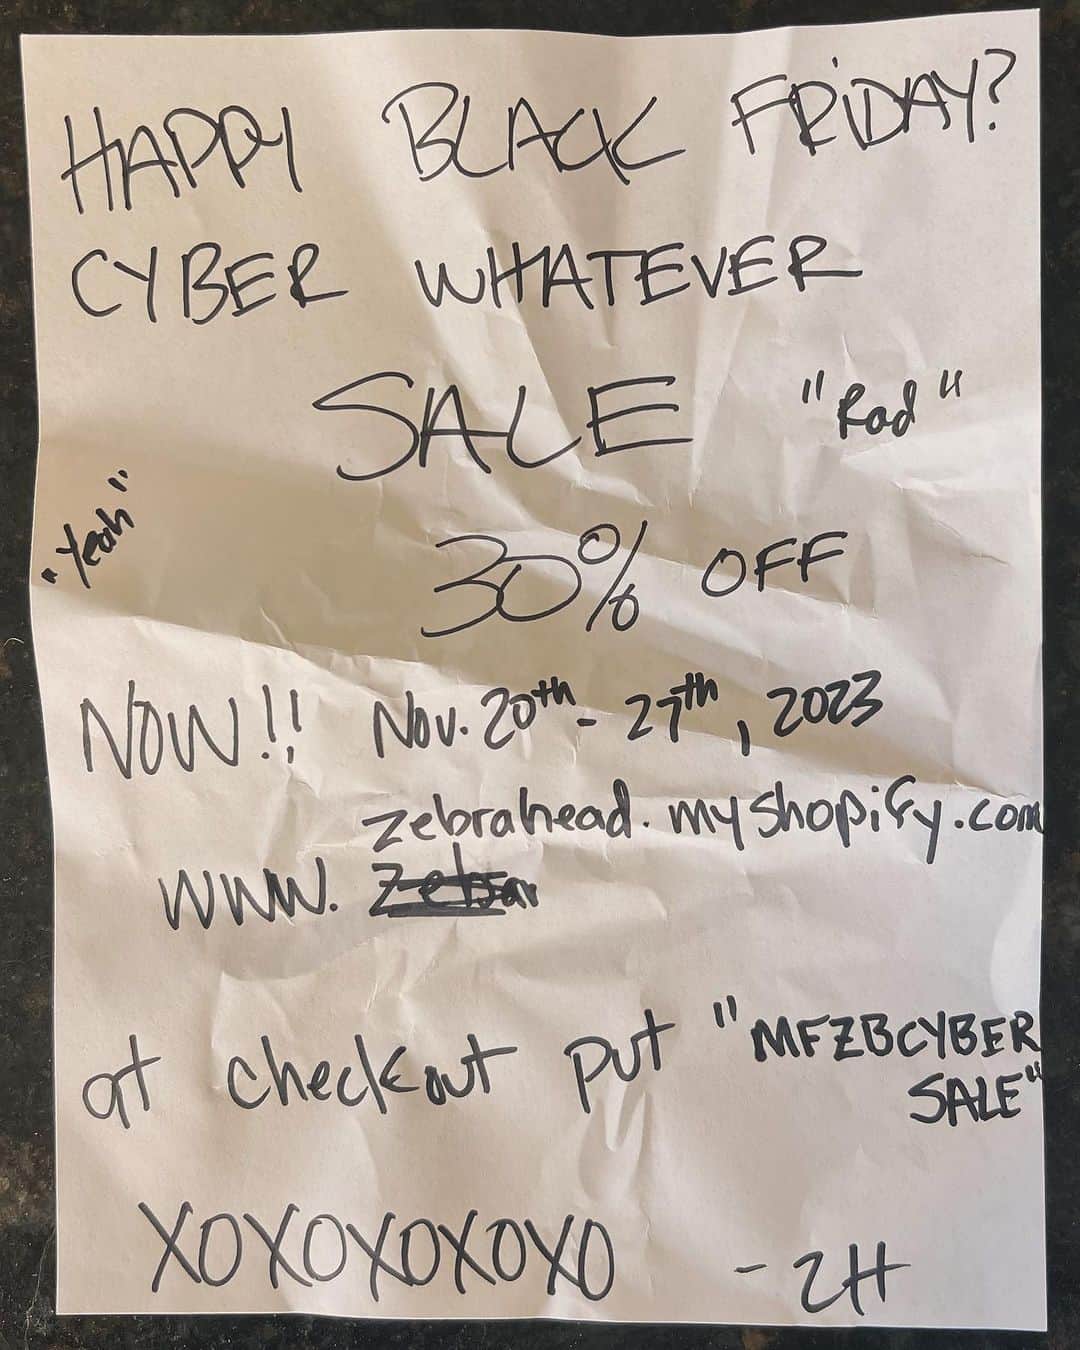 HAPPY BLACK FRIDAY?
CYBER WHATEVER
SALE "Rad"
"Yeah"
30% OFF
NOW!! Nov. 20th - 27th, 2023
zebrahead.myshopify.com
WWW. Zebar
at checkout put "MFZBCYBER
SALE"
XOXOXOXOXO - ZH